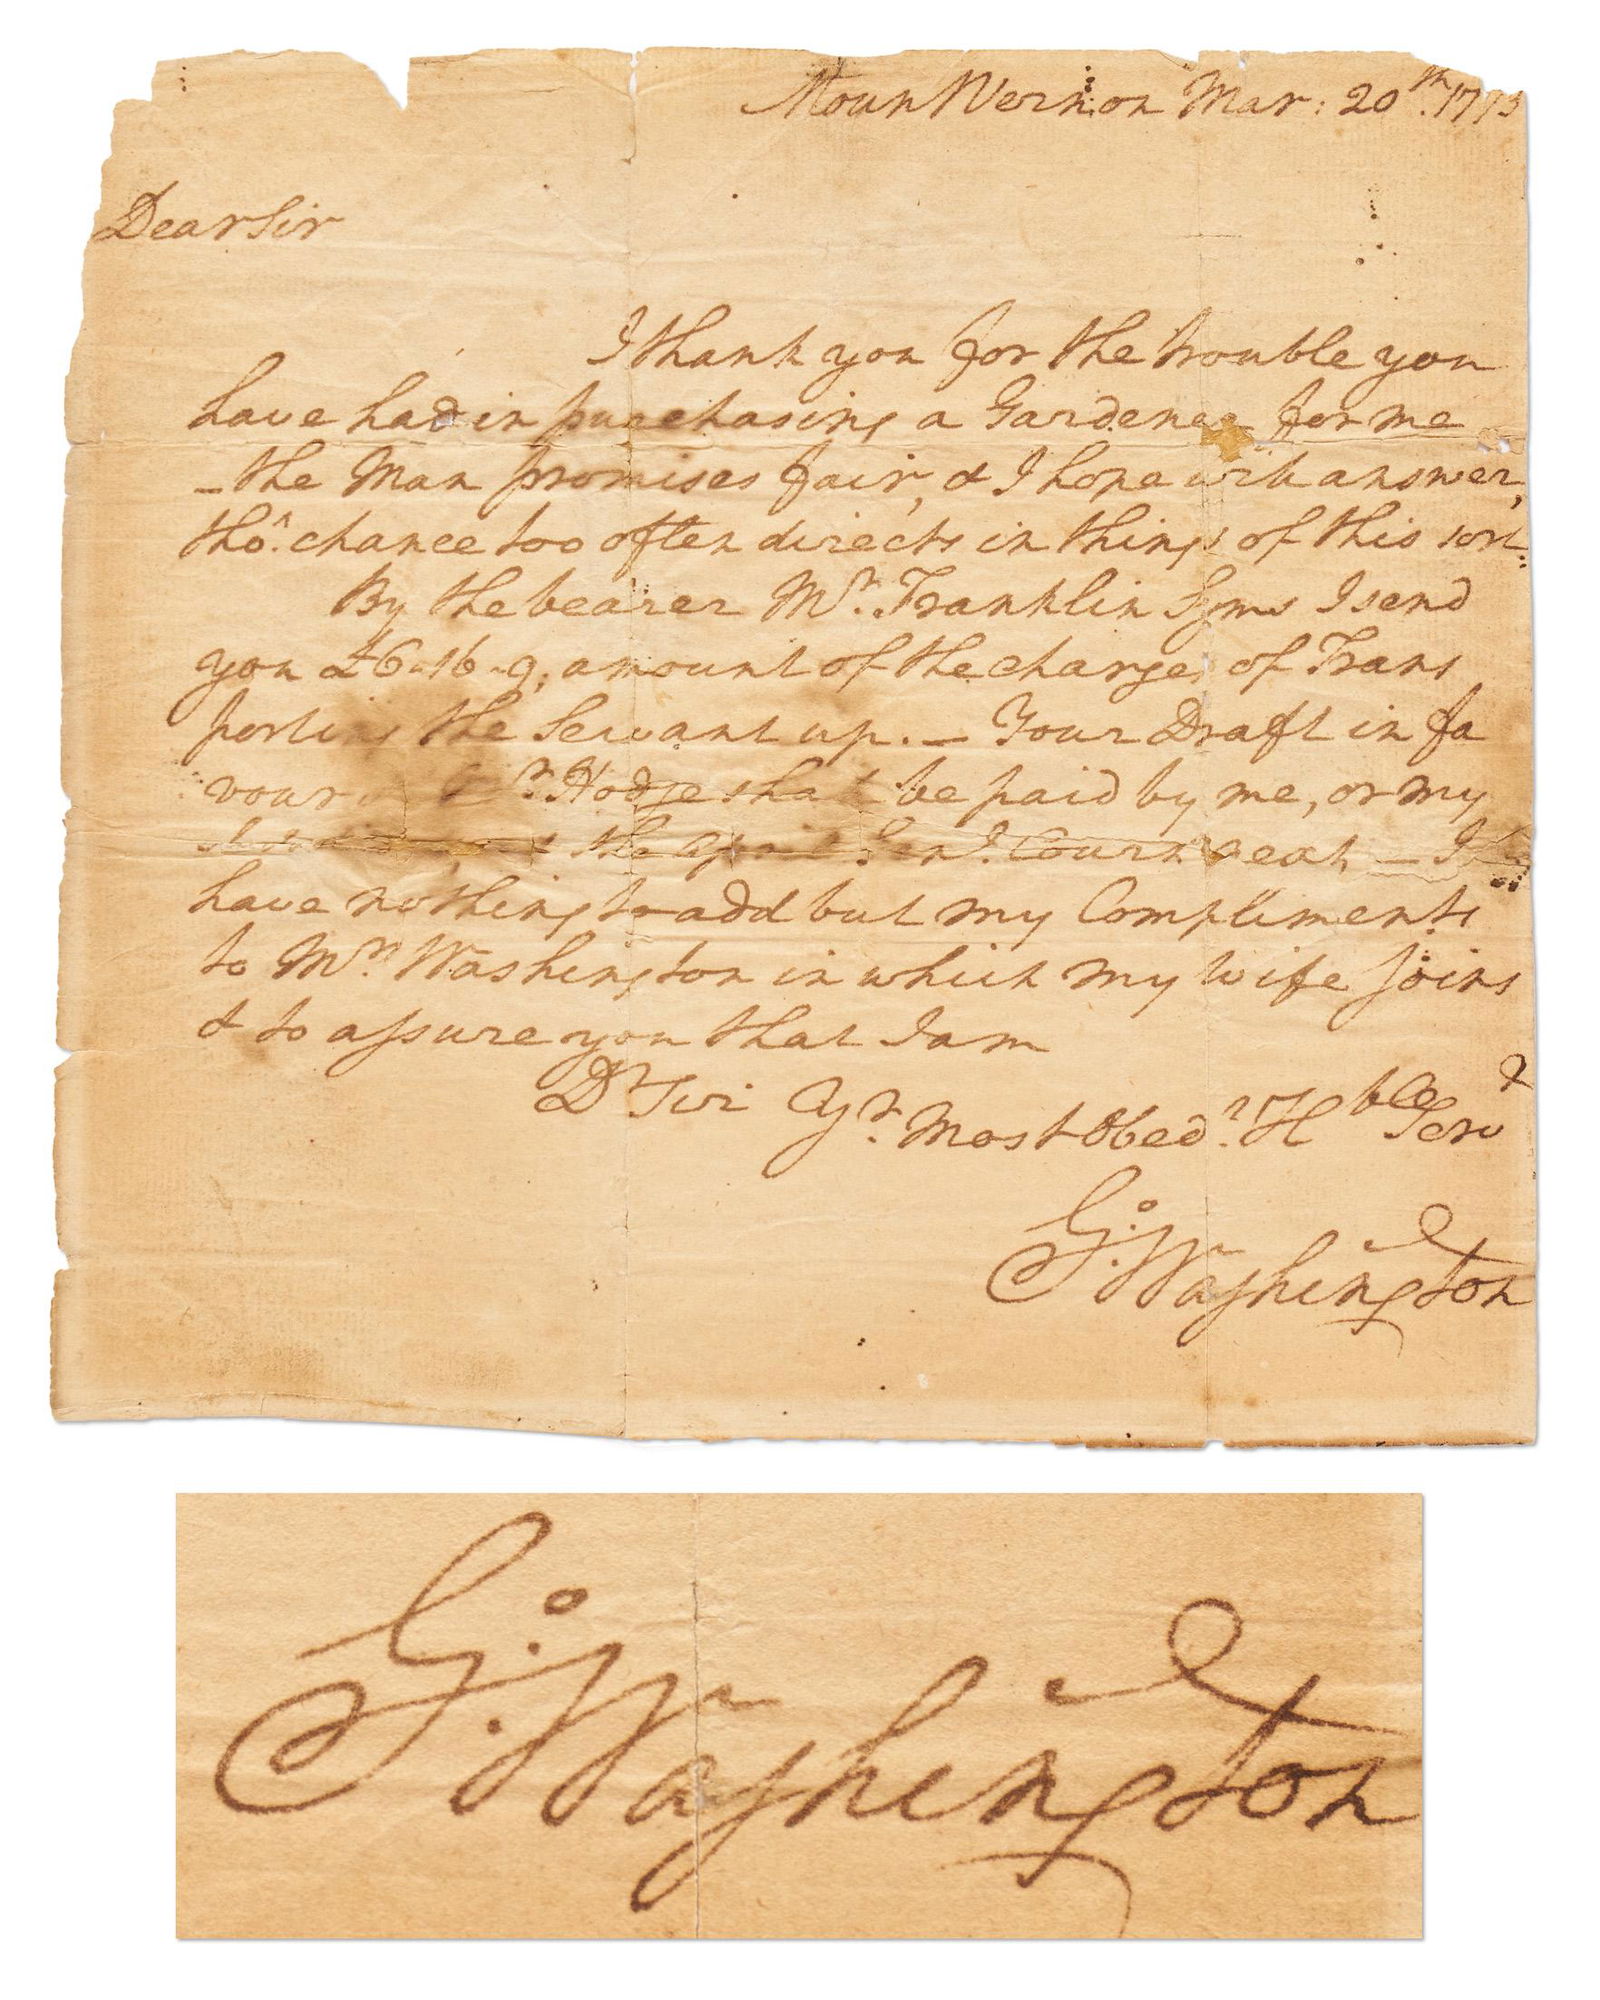 Moun Vernon Mar: 20th. 1773
Dear Sir
I thank you for the trouble you
have had in purchasing a Gardener for me
– the Man promises fair, & I hope will answer,
tho'. chance too often directs in things of this sort.
By the bearer Mr. Franklin Syms I send
you £6.16.9, amount of the charges of Trans
porting the Servant up. – Your Draft in fa
vour Mr. Hodge shall be paid by me, or my
the April Genl. Court next, – I
have nothing to add but my Compliments
to Mrs. Washington in which my Wife joins
& to assure you that I am
Dr Sir Yr. Most Obedt. Hble Servt
Go: Washington
Go: Washington